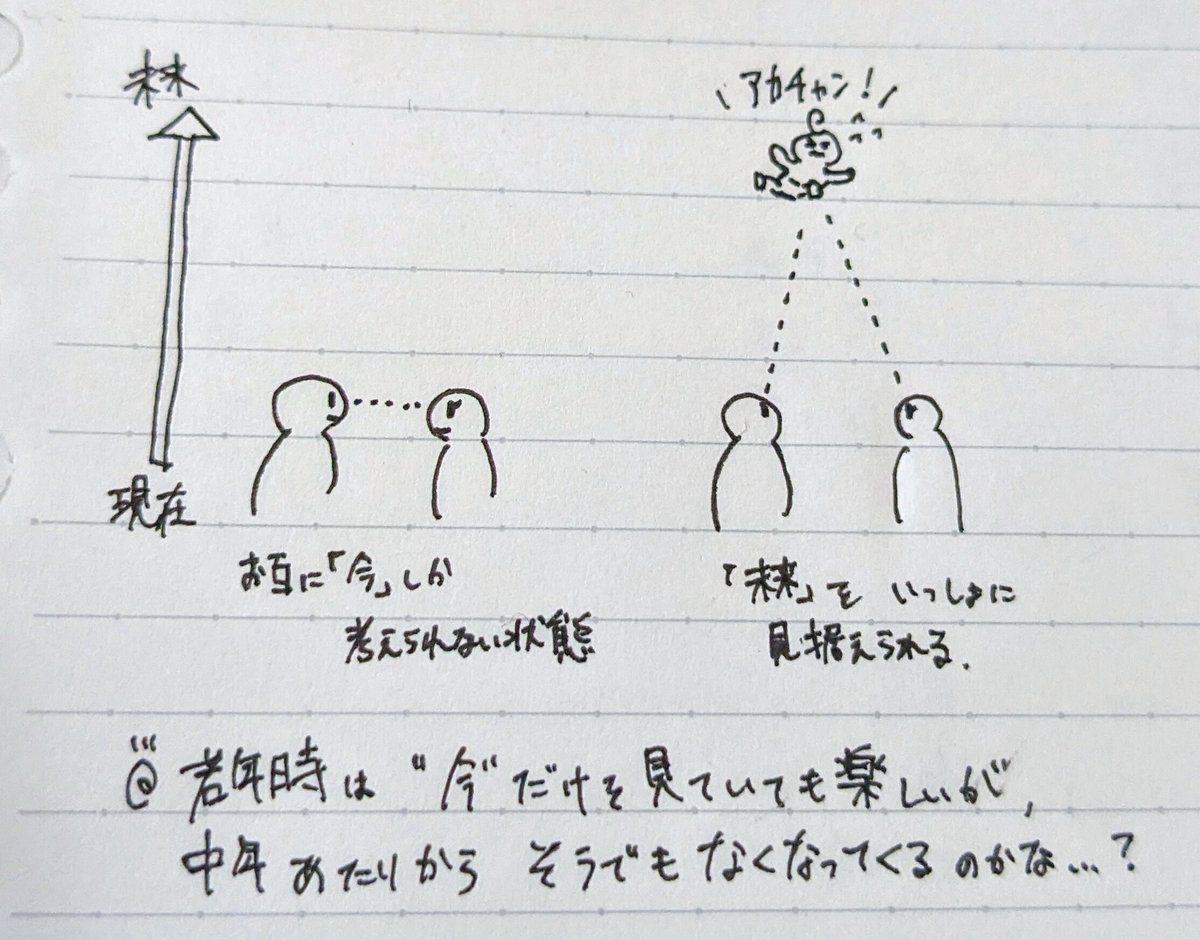 未来
\アカチャン!/
現在
お互に「今」しか
考えられない状態
「未来」を いっしょに
見据えられる.
@ 若年時は "今" だけを見ていても楽しいが,
中年あたりから そうでもなくなってくるのかな…?